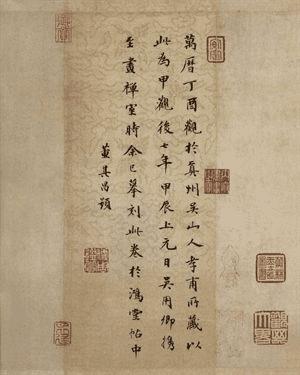 萬曆丁酉觀於真州吳山人孝甫所藏以
此為甲觀後七年甲辰上元日吳用卿携
至畫禪室時余已摹刻此卷於鴻堂帖中
董其昌題